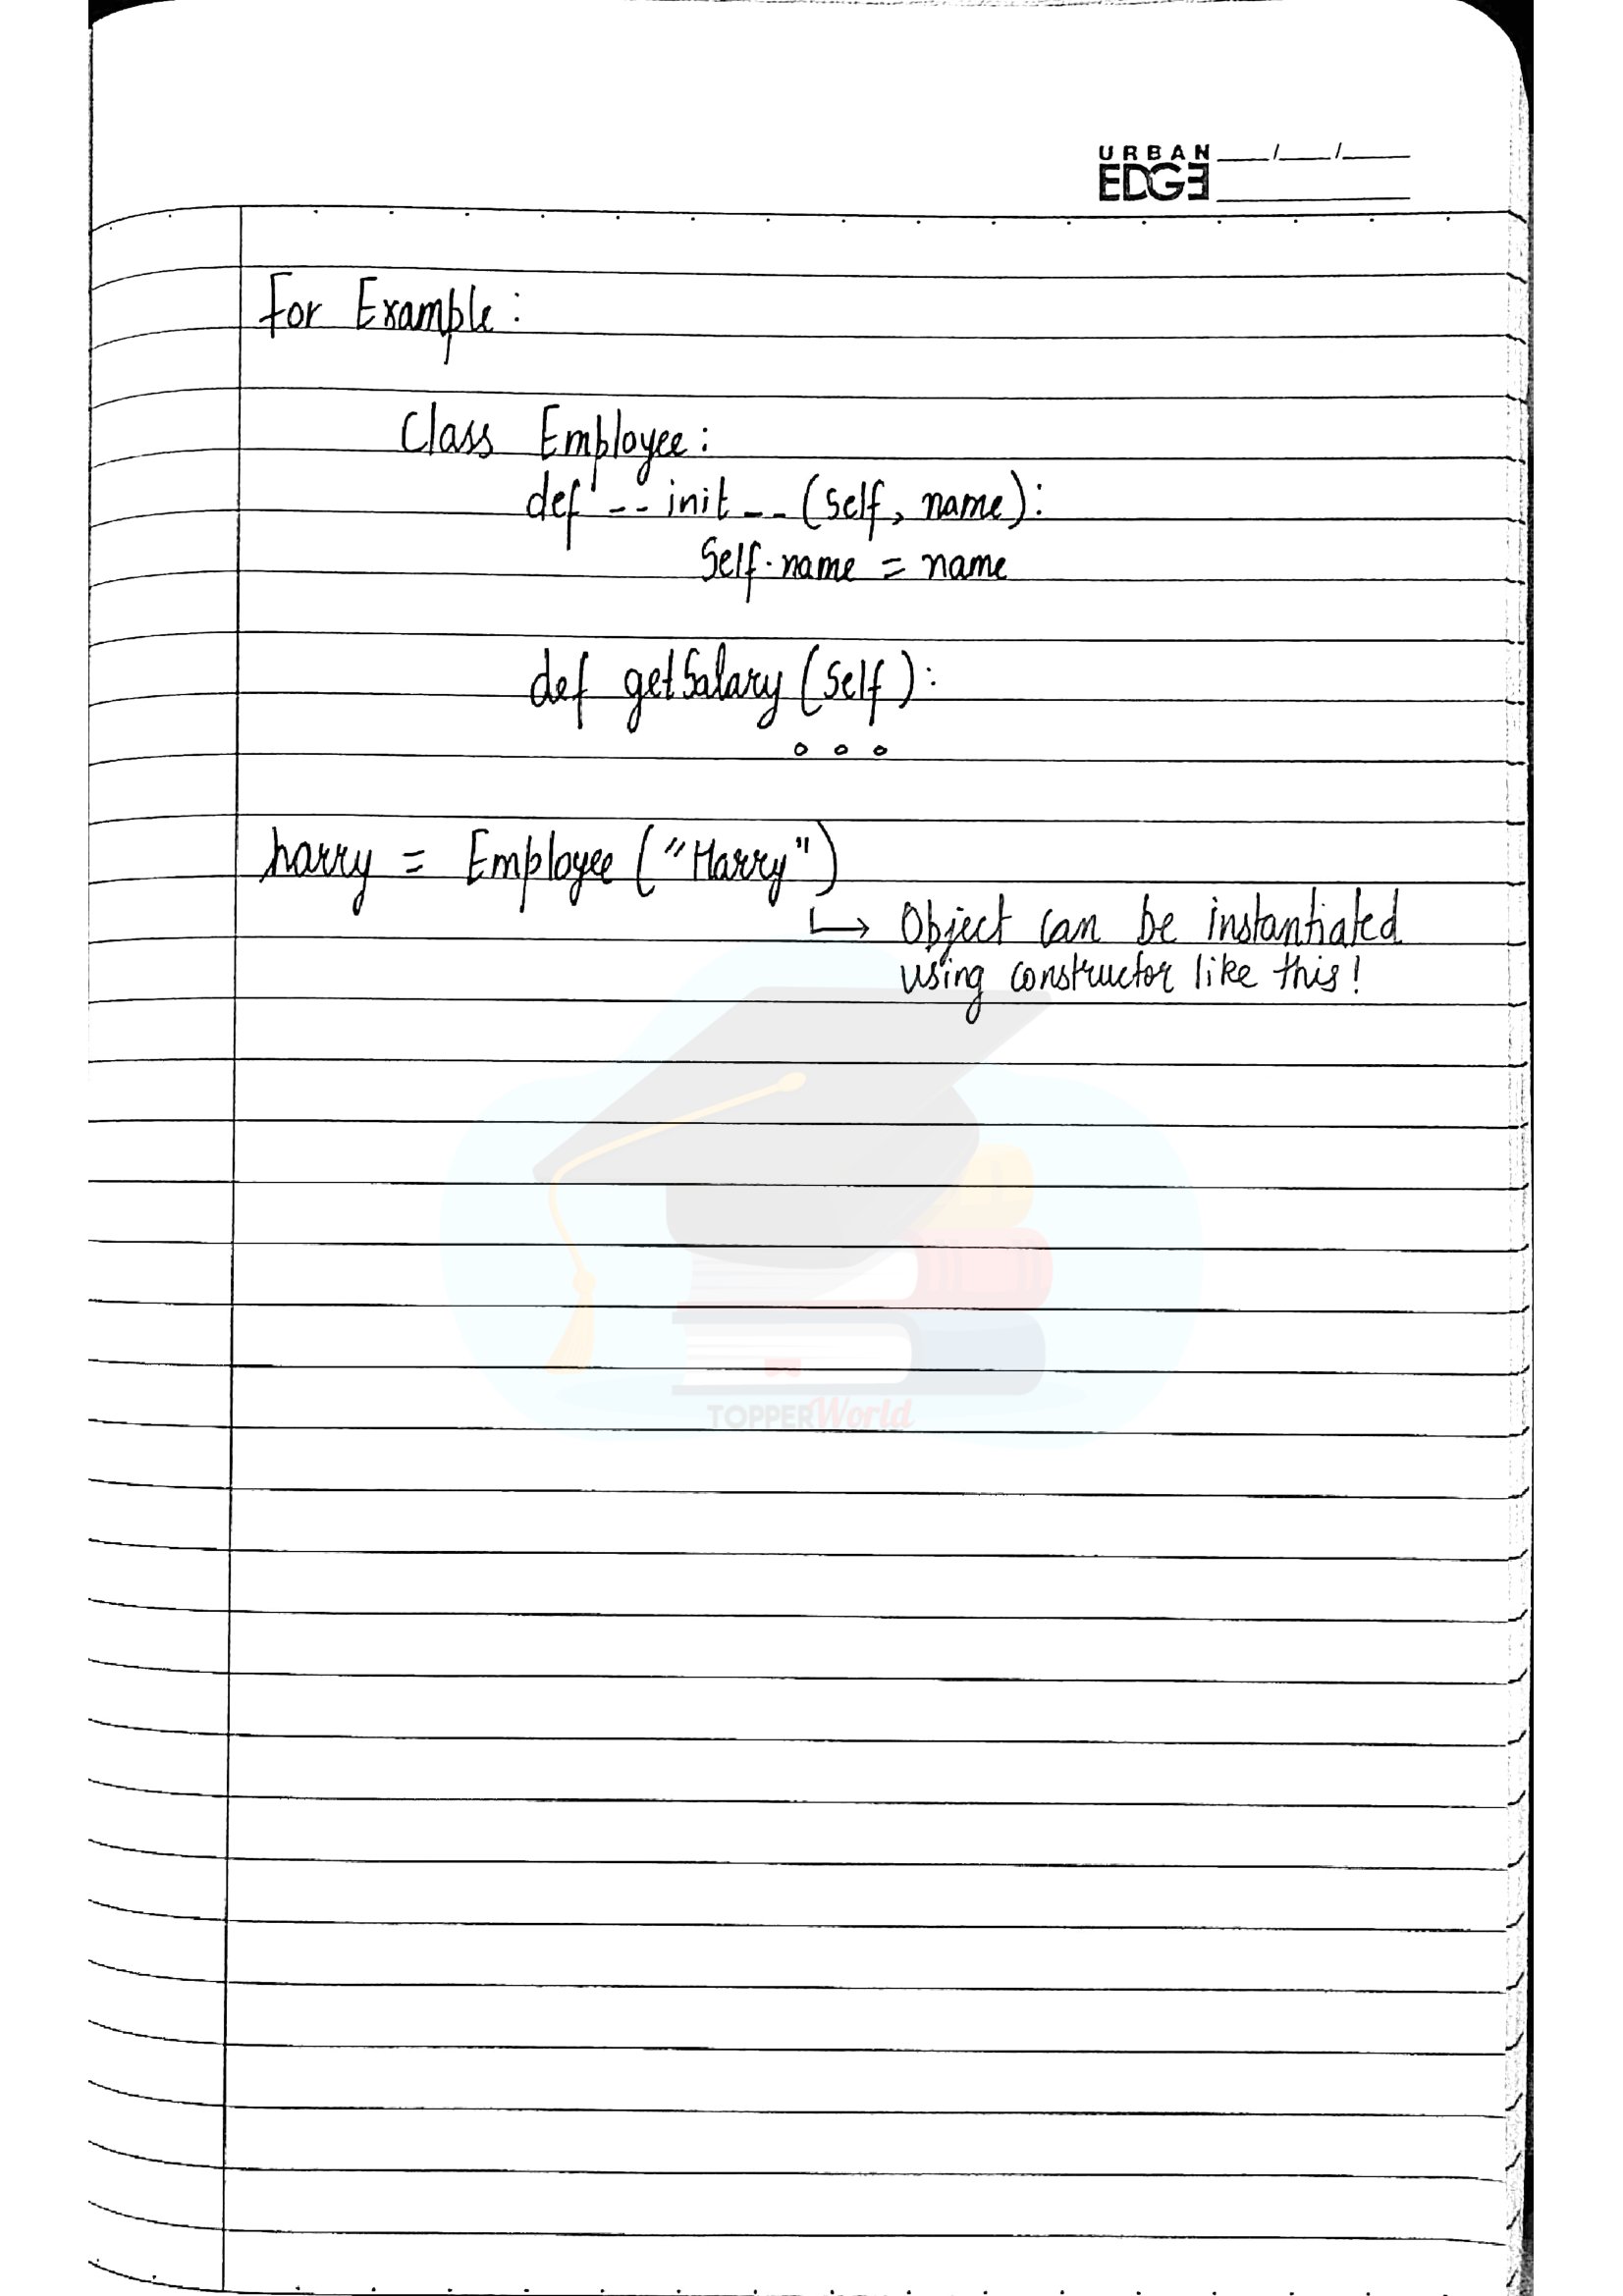 URBAN
EDGE
For Example:
Class Employee:
def __init__(self, name):
Self.name = name
def getSalary(self):
...
harry = Employee("Harry")
↳ Object can be instantiated
using constructor like this!
TOPPERWorld